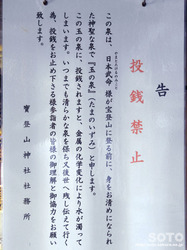 告
投銭禁止
この泉は、日本武命様が宝登山に登る前に、身をお清めになられ
た神聖な泉で『玉の泉』（たまのいずみ）と申します。
この玉の泉に、投銭されますと、金属の化学変化により水が濁って
しまいます。いつまでも清らかな泉を張り又後世へ残し伝えて行く
為、投銭をお止め下さる様参詣者の皆様の御理解と御協力をお願い
致します。
寳登山神社社務所
SOTO